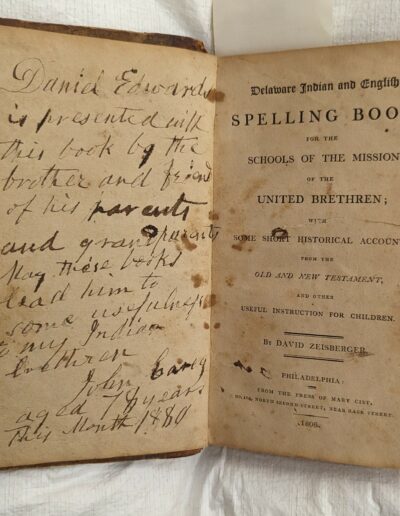 Daniel Edwards
is presented with
this book by the
brother and friend
of his parents
and grandparents
May these books
lead him to
some usefulness
to my Indian
brethren
John
aged 78 years
This Month 1880
Delaware Indian and English
SPELLING BOO
FOR THE
SCHOOLS OF THE MISSION
OF THE
UNITED BRETHREN;
WITH
SOME SHORT HISTORICAL ACCOUNT
FROM THE
OLD AND NEW TESTAMENT,
AND OTHER
USEFUL INSTRUCTION FOR CHILDREN.
BY DAVID ZEISBERGER.
PHILADELPHIA:
FROM THE PRESS OF MARY CIST,
NORTH SECOND-STREET, NEAR RACE STREET.
1806.